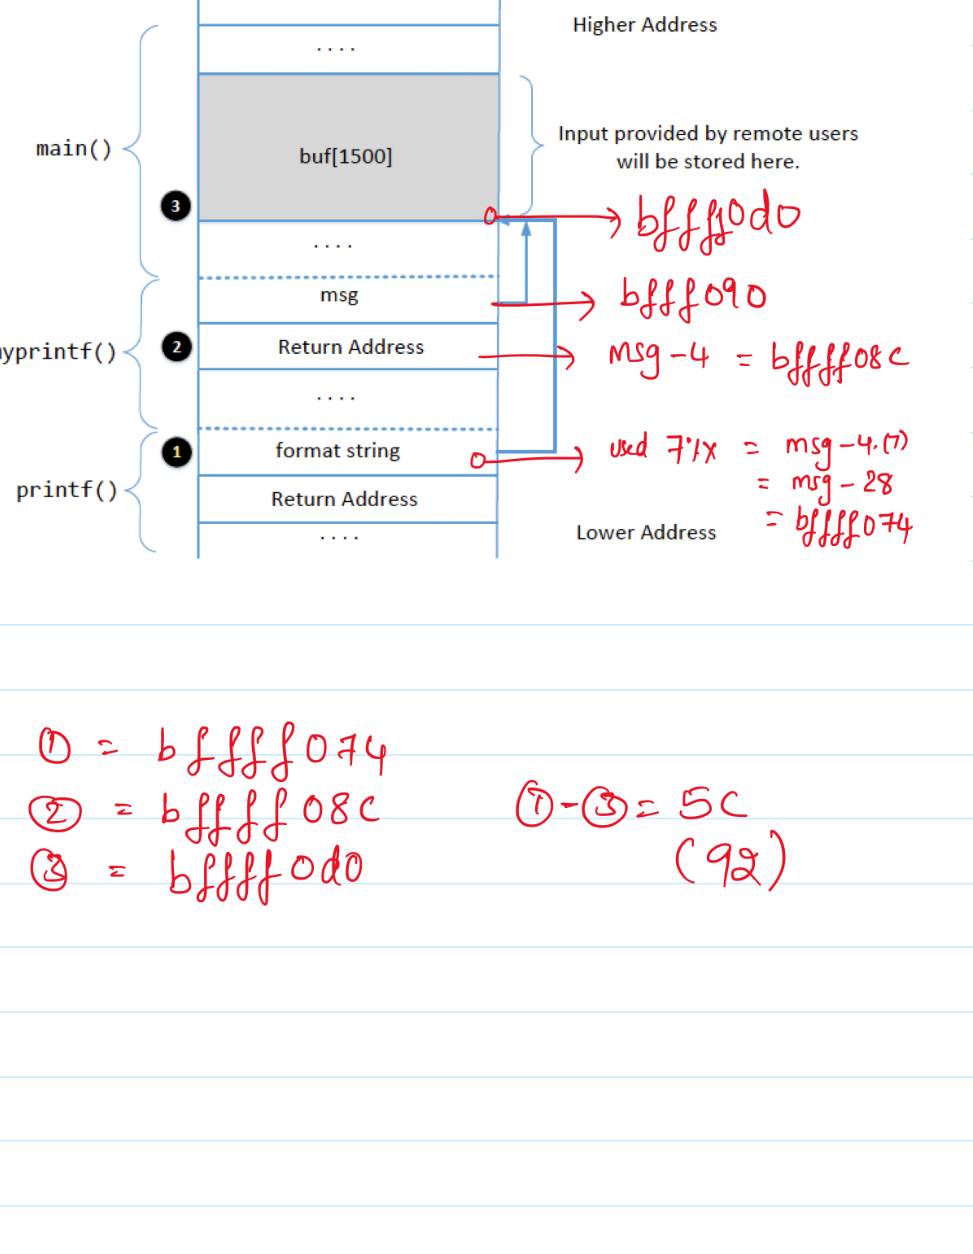 Higher Address
....
main()
buf[1500]
Input provided by remote users
will be stored here.
3
bffff0d0
....
msg
bfff090
yprintf()
2
Return Address
msg-4 = bffff08c
....
1
format string
used 7%x = msg-4.(7)
= msg-28
= bffff074
printf()
Return Address
Lower Address
....
① = bffff074
② = bffff08c
③ = bffff0d0
①-③ = 5C
(92)